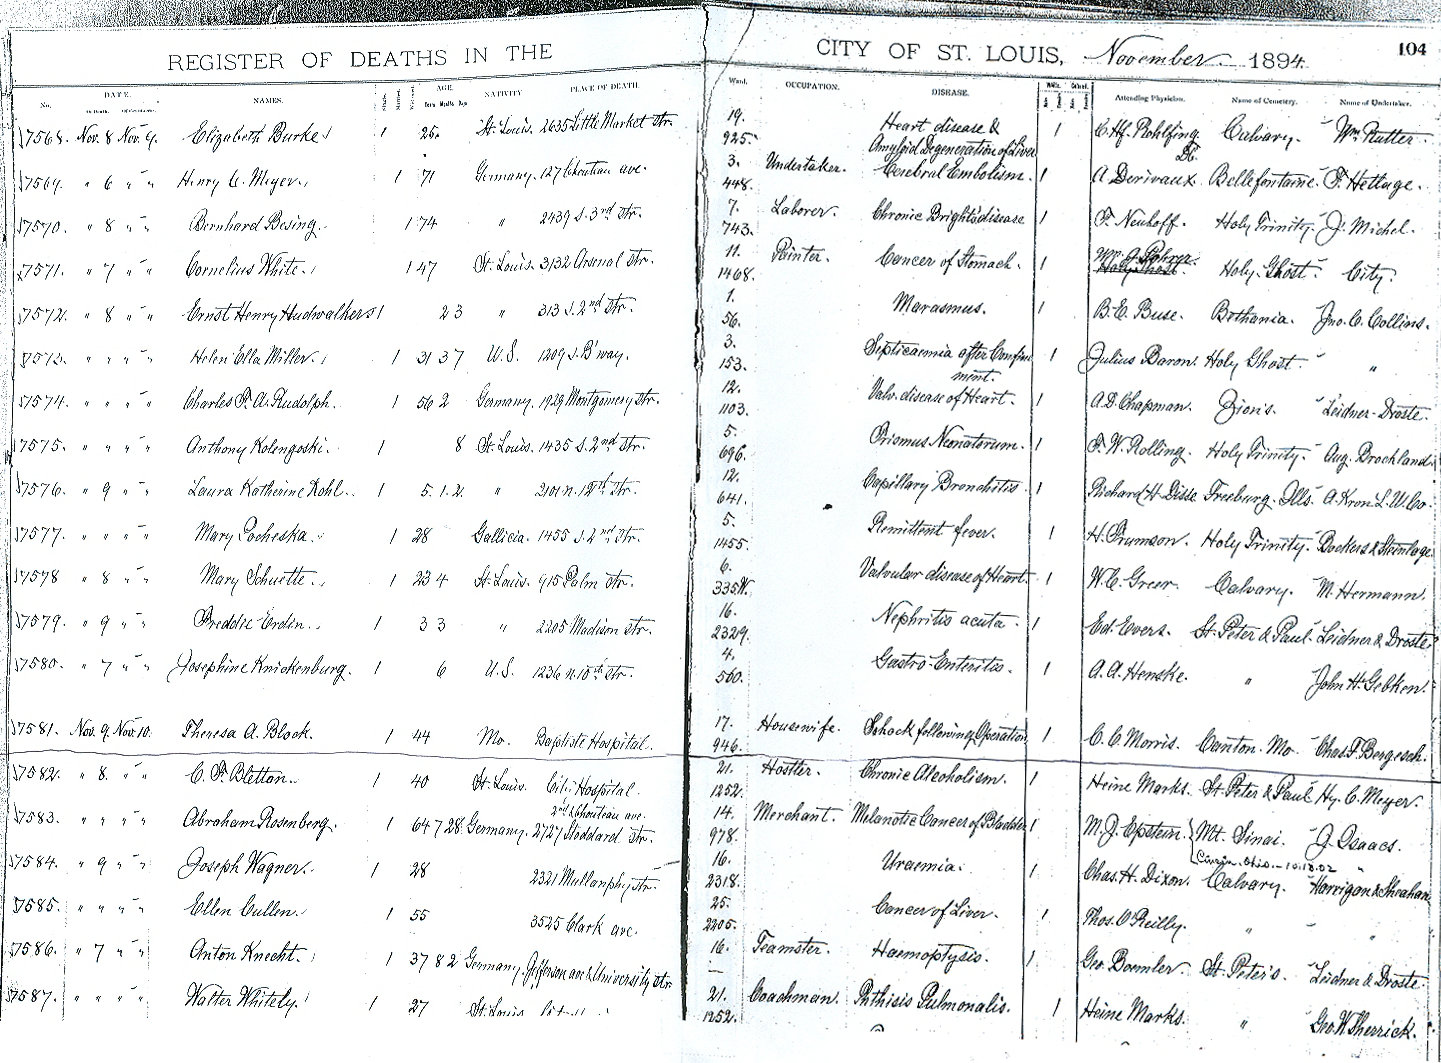 REGISTER OF DEATHS IN THE CITY OF ST. LOUIS, November 1894 104
No. DATE. NAMES. AGE. NATIVITY PLACE OF DEATH. Ward. OCCUPATION. DISEASE. White. Colored. Attending Physician. Name of Cemetery. Name of Undertaker.
of Death. Years Months Days
17568. Nov. 8 Nov. 9. Elizabeth Burke 1 25. St. Louis. 2635 Little Market Str. 19. 925. Heart disease & Amyloid Degeneration of Liver 1 C. Hf. Rohlfing Calvary. Wm. Rutter.
17569. " 6 " " Henry C. Meyer. 1 71 Germany. 127 Chouteau ave. 3. 448. Undertaker. Cerebral Embolism. 1 A Derivaux Bellefontaine. F. Hetlage.
17570. " 8 " " Bernhard Besing. 1 74 " 2439 S. 3rd Str. 7. 743. Laborer. Chronic Brights disease 1 F. Neuhoff. Holy Trinity. J. Michel.
17571. " 7 " " Cornelius White. 1 47 St. Louis. 3132 Arsenal Str. 11. 1468. Painter. Cancer of Stomach. 1 Wm. J. Holy Ghost. City.
17572. " 8 " " Ernst Henry Hudwalkers 1 2 3 " 313 S. 2nd Str. 1. 56. Marasmus. 1 B. E. Buse. Bethania. Jno. C. Collins.
17573. " " " " Helen Ella Miller. 1 31 3 7 U.S. 1209 S. B'way. 3. 153. Septicaemia after Confinement. 1 Julius Baron. Holy Ghost. "
17574. " " " " Charles F. A. Rudolph. 1 56 2 Germany. 1929 Montgomery Str. 12. 1103. Valv. disease of Heart. 1 A. D. Chapman. Zion's. Leidner-Droste.
17575. " " " " Anthony Kolengoski. 1 8 St. Louis. 1435 S. 2nd Str. 5. 696. Trismus Neonatorum. 1 F. W. Rolling. Holy Trinity. Aug. Brockland.
17576. " 9 " " Laura Katherine Kohl. 1 5. 1. 2. " 2101 n. 19th Str. 12. 641. Capillary Bronchitis 1 Richard H. Disse Freeburg. Ills. A. Kron L. U. Co.
17577. " " " " Mary Pocheska. 1 28 Gallicia. 1455 S. 2nd Str. 5. 1455. Remittent fever. 1 H. Holy Trinity. Bockers & Steinlage
17578 " 8 " " Mary Schuette. 1 23 4 St. Louis. 915 Palm Str. 6. 335W. Valvular disease of Heart. 1 W. C. Greer. Calvary. M. Hermann.
17579. " 9 " " Freddie Erdin. 1 3 3 " 2205 Madison Str. 16. 2329. Nephritis acuta. 1 Ed. Evers. St. Peter & Paul Leidner & Droste
17580. " 7 " " Josephine Knickenburg. 1 6 U.S. 1236 n. 15th Str. 4. 560. Gastro-Enteritis. 1 A. A. Henske. " John H. Gebken.
17581. Nov. 9. Nov. 10. Theresa A. Block. 1 44 Mo. Baptiste Hospital. 17. 946. Housewife. Schock following Operation 1 C. C. Morris. Canton. Mo. Chas. F. Bergesch.
17582. " 8. " " C. F. Bletton. 1 40 St. Louis. City Hospital. 21. 1252. Hostler. Chronic Alcoholism. 1 Heine Marks. St. Peter & Paul Hy. C. Meyer.
17583. " " " " Abraham Rosenberg. 1 64 7 28 Germany. 2727 Stoddard Str. 14. 978. Merchant. Melanotic Cancer of Bladder 1 M. J. Epstein. Mt. Sinai. J. Isaacs.
2nd & Chouteau ave.
Cincin. Ohio. 10.18.02
17584. " 9 " " Joseph Wagner. 1 28 2321 Mullanphy Str. 16. 2318. Uraemia. 1 Chas. H. Dixon. Calvary. Harrigan & Sheahan
17585. " " " " Ellen Cullen. 1 55 3525 Clark ave. 25. 2205. Cancer of Liver. 1 Thos. O'Reilly. " "
17586. " 7 " " Anton Knecht. 1 37 8 2 Germany. Jefferson ave & University Str 16. Teamster. Haemoptysis. 1 Geo. Boemler. St. Peter's. Leidner & Droste.
17587. " " " " Walter Whitely. 1 27 St. Louis 21. 1252. Coachman. Phthisis Pulmonalis. 1 Heine Marks. " Geo. W. Sherrick.